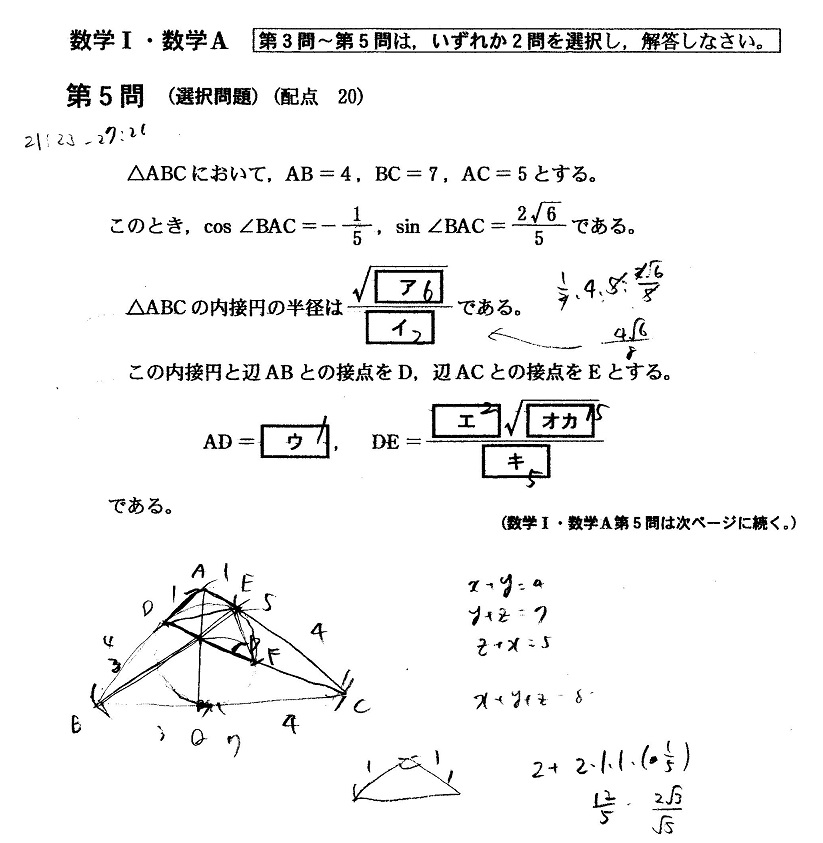 数学Ⅰ・数学A 第3問～第5問は，いずれか2問を選択し，解答しなさい。
第5問 （選択問題）（配点 20）
△ABCにおいて，AB＝4，BC＝7，AC＝5とする。
このとき，cos∠BAC＝－1/5，sin∠BAC＝2√6/5である。
△ABCの内接円の半径は √ア6/イ2 である。
4√6/8
この内接円と辺ABとの接点をD，辺ACとの接点をEとする。
AD＝ウ1，　DE＝エ2√オカ15/キ5
である。
（数学Ⅰ・数学A第5問は次ページに続く。）
A 1 E
D 1 5
4 3 F 4
B C
Q 7 4
x+y=4
y+z=7
z+x=5
x+y+z=8
1 1
2+2・1・1・(1/5)
12/5 2√3/√5